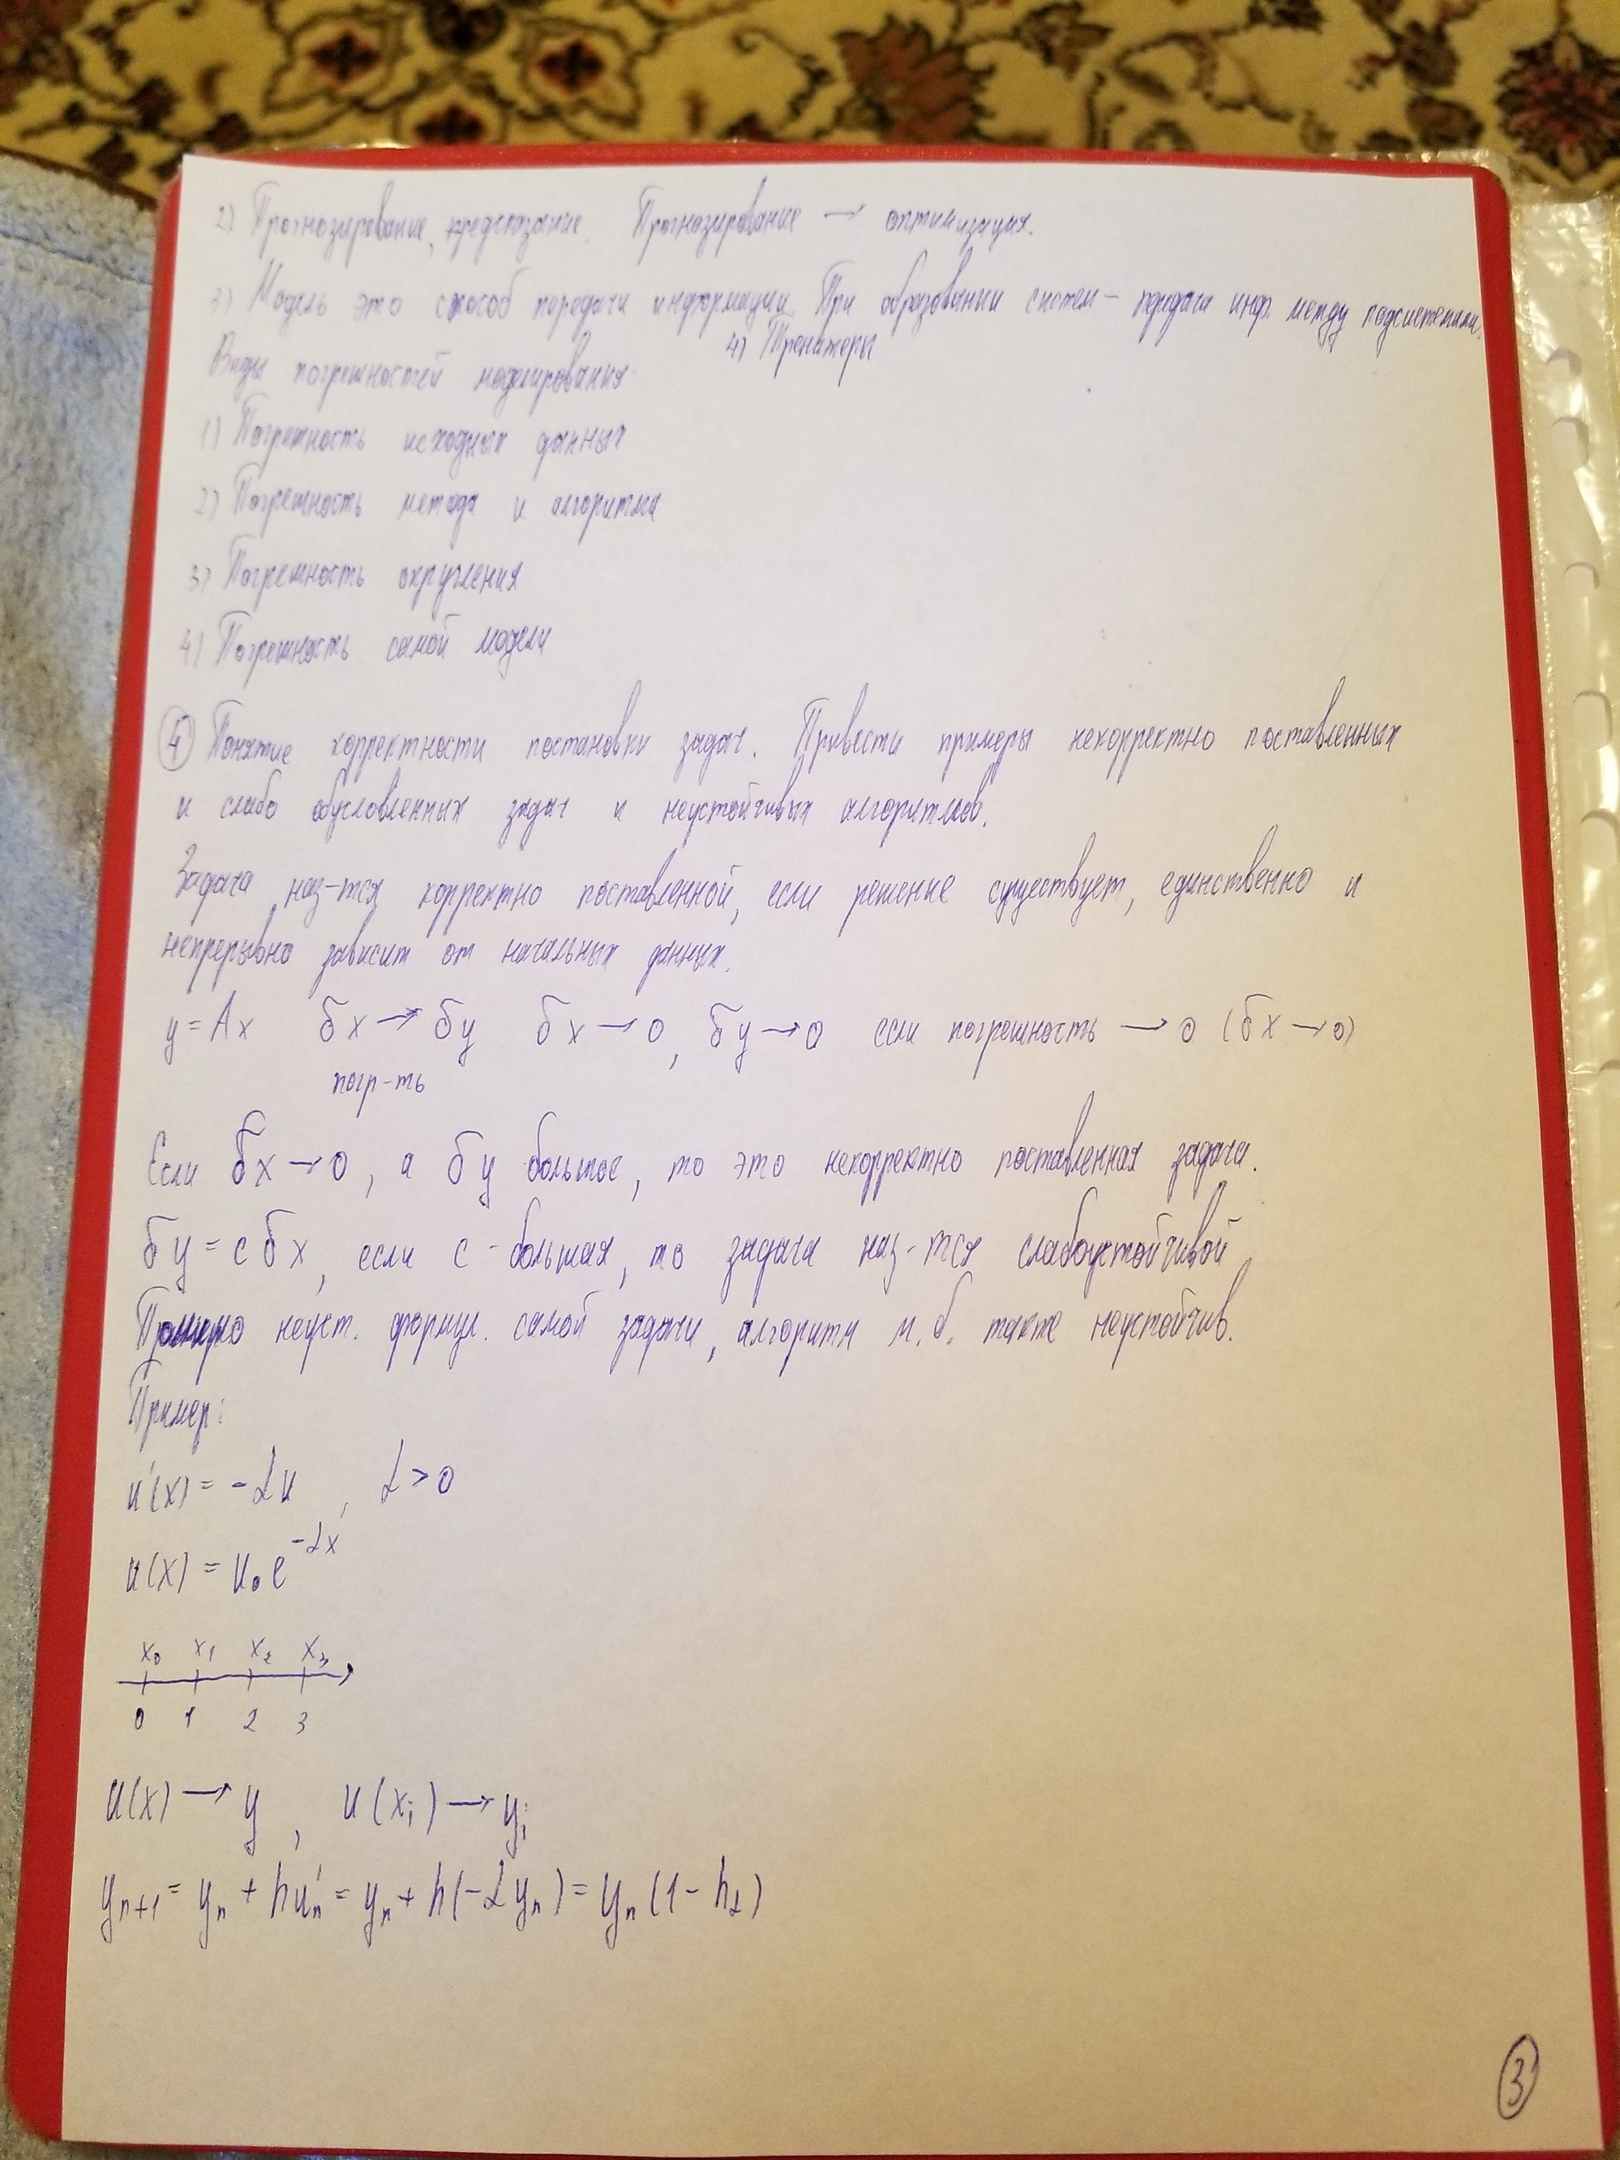 2) Прогнозирование, предсказание. Прогнозирование → оптимизация.
3) Модель это способ передачи информации. При образовании систем – передача инф. между подсистемами.
4) Тренажеры
Виды погрешностей моделирования:
1) Погрешность исходных данных
2) Погрешность метода и алгоритма
3) Погрешность округления
4) Погрешность самой модели
4 Понятие корректности постановки задач. Привести примеры некорректно поставленных
и слабо обусловленных задач и неустойчивых алгоритмов.
Задача наз-тся корректно поставленной, если решение существует, единственно и
непрерывно зависит от начальных данных.
y = Ax δx → δy δx → 0, δy → 0 если погрешность → 0 (δx → 0)
погр-ть
Если δx → 0, а δy большое, то это некорректно поставленная задача.
δy = c δx, если c - большая, то задача наз-тся слабоустойчивой
неуст. формул. самой задачи, алгоритм м.б. также неустойчив.
Пример:
u'(x) = -αu , α > 0
u(x) = u₀e^(-αx)
x₀ x₁ x₂ x₃
0 1 2 3
u(x) → y , u(xᵢ) → yᵢ
yₙ₊₁ = yₙ + hu'ₙ = yₙ + h(-αyₙ) = yₙ(1 - hα)
3